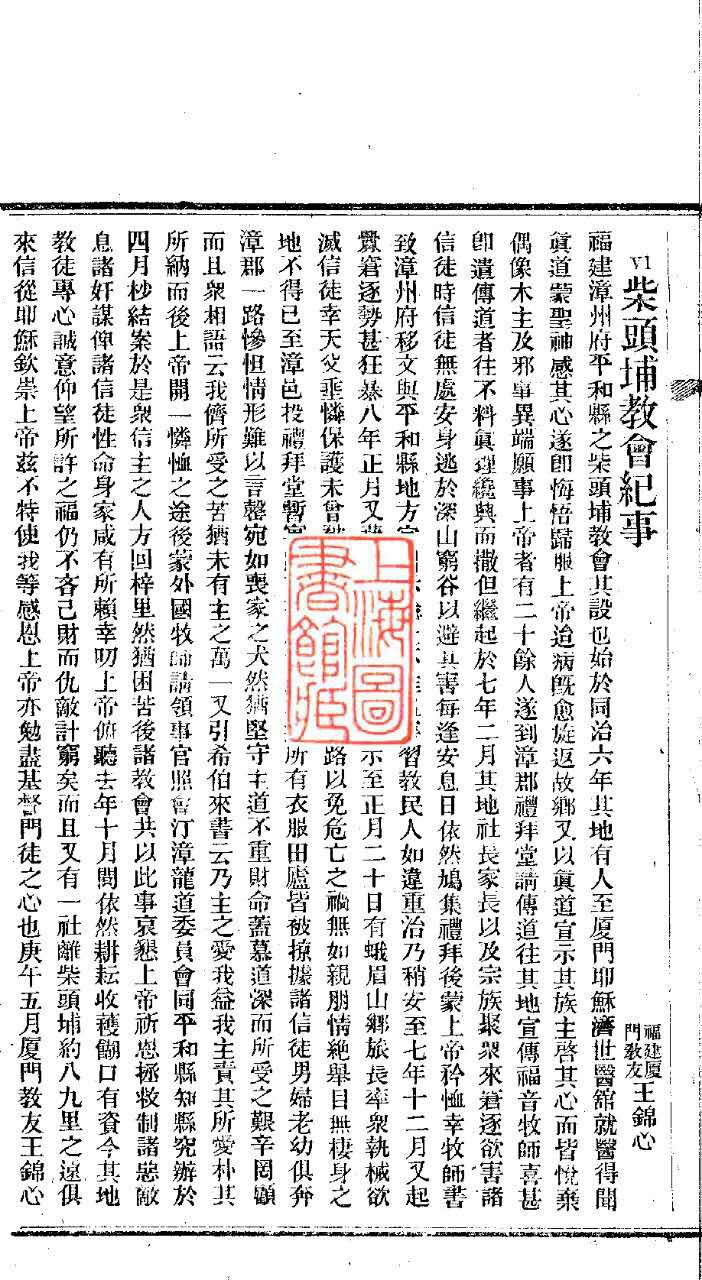 VI 柴頭埔教會紀事
福建廈門教友王錦心
福建漳州府平和縣之柴頭埔教會其設也始於同治六年其地有人至厦門耶穌濟世醫舘就醫得聞
眞道蒙聖神感其心遂卽悔悟歸服上帝迨病旣愈旋返故鄉又以眞道宣示其族主啓其心而皆悅棄
偶像木主及邪事異端願事上帝者有二十餘人遂到漳郡禮拜堂請傳道往其地宣傳福音牧師喜甚
卽遺傳道者往不料眞理纔興而撒但繼起於七年二月其地社長家長以及宗族聚衆來窘逐欲害諸
信徒時信徒無處安身逃於深山窮谷以避其害每逢安息日依然鳩集禮拜後蒙上帝矜恤幸牧師書
致漳州府移文與平和縣地方習教民人如違重治乃稍安至七年十二月又起
釁窘逐勢甚狂暴八年正月又示至正月二十日有蛾眉山鄉旅長率衆執械欲
滅信徒幸天父垂憐保護未曾路以免危亡之禍無如親朋情絶舉目無棲身之
地不得已至漳邑投禮拜堂暫所有衣服田廬皆被撩據諸信徒男婦老幼俱奔
漳郡一路慘怛情形難以言罄宛如喪家之犬然猶堅守主道不重財命蓋慕道深而所受之艱辛罔顧
而且衆相語云我儕所受之苦猶未有主之萬一又引希伯來書云乃主之愛我益我主責其所愛朴其
所納而後上帝開一憐恤之途後蒙外國牧師請領事官照會汀漳龍道委員會同平和縣知縣究辦於
四月杪結案於是衆信主之人方回梓里然猶困苦後諸教會共以此事哀懇上帝祈恩拯救制諸惡敵
息諸奸謀俾諸信徒性命身家咸有所賴幸叨上帝俯聽去年十月間依然耕耘收穫餬口有資今其地
教徒專心誠意仰望所許之福仍不吝己財而仇敵計窮矣而且又有一社離柴頭埔約八九里之遠俱
來信從耶穌欽崇上帝茲不特使我等感恩上帝亦勉盡基督門徒之心也庚午五月厦門教友王錦心
上海圖書館藏